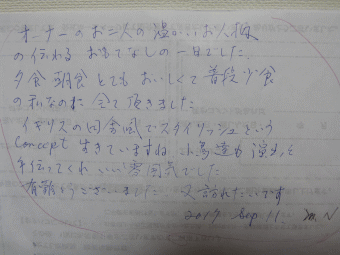 オーナーのお二人の温かいお人柄
の伝わる おもてなしの一日でした。
夕食 朝食 とても おいしくて 普段 少食
の私なのに 全て 頂きました
イギリスの田舎風でスタイリッシュという
Conceptも 生きていますね 小鳥達も 演出を
手伝ってくれ いい雰囲気でした
有難うございました 又訪れたいです
2017 Sep. 11 M. N